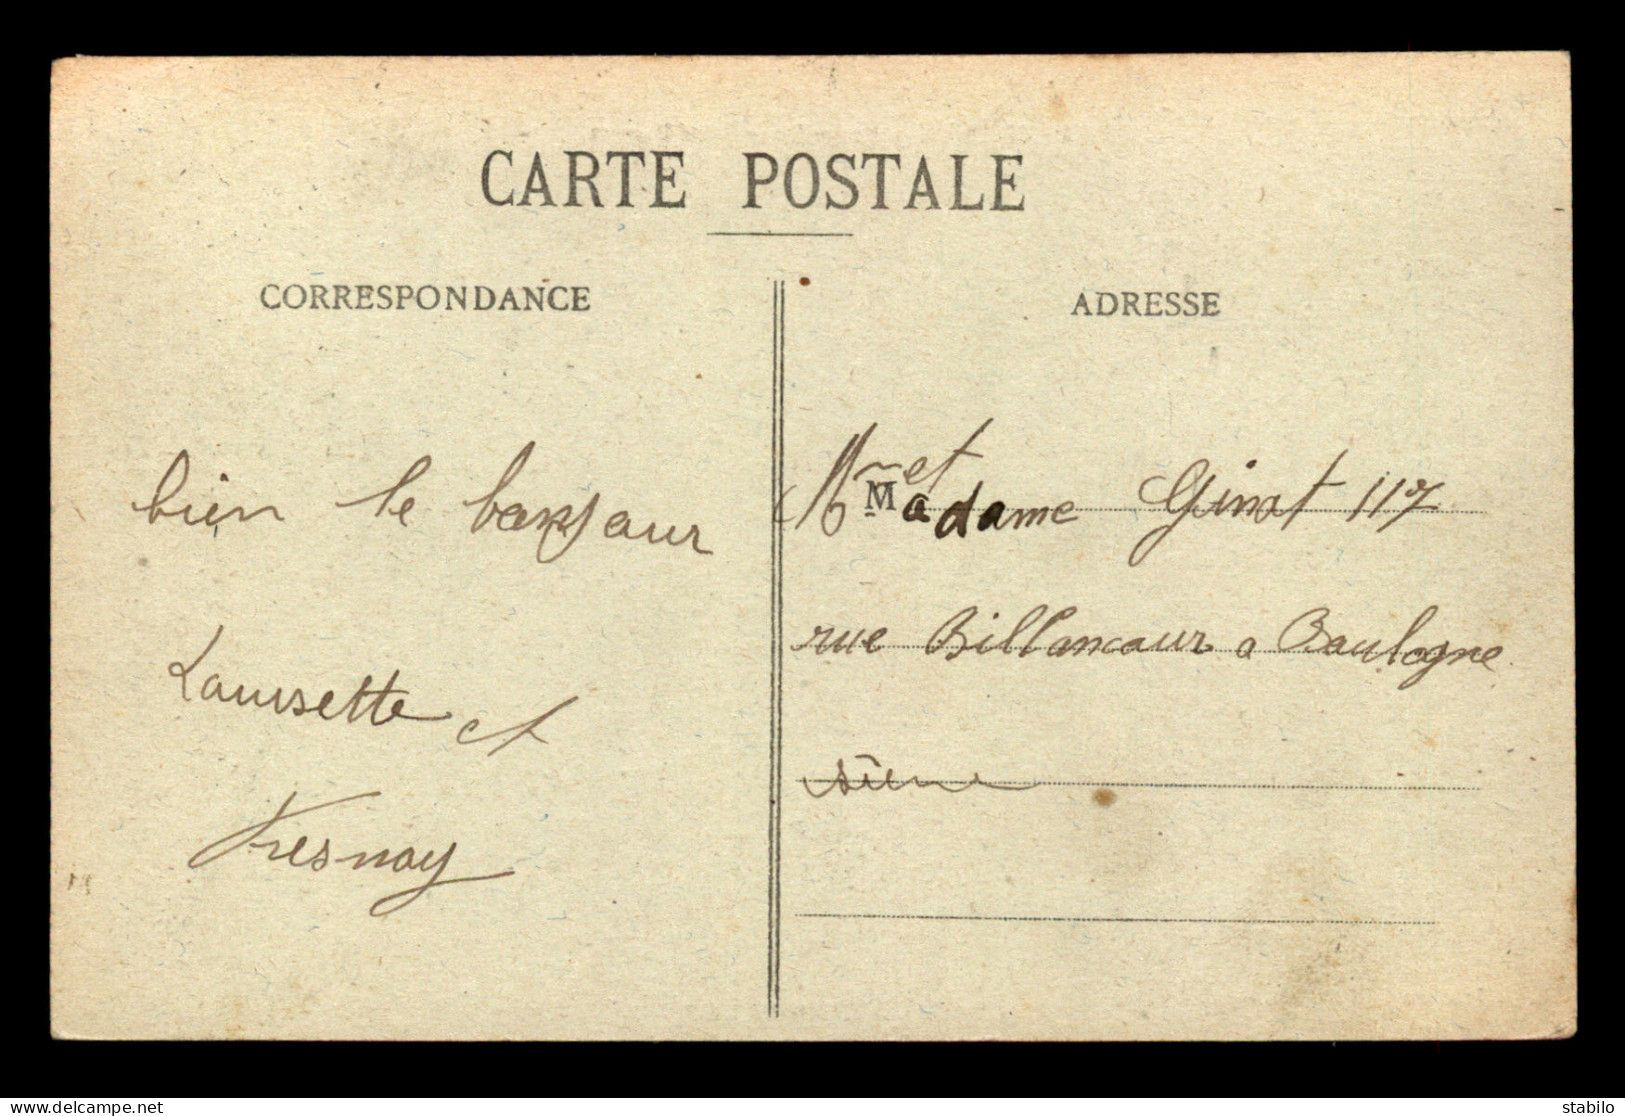 CARTE POSTALE
CORRESPONDANCE
ADRESSE
bien le bonjour
Lauisette et
Fresnay
Mr et
Madame Ginot 117
rue Billancour a Boulogne
seine
www.delcampe.net
stabilo